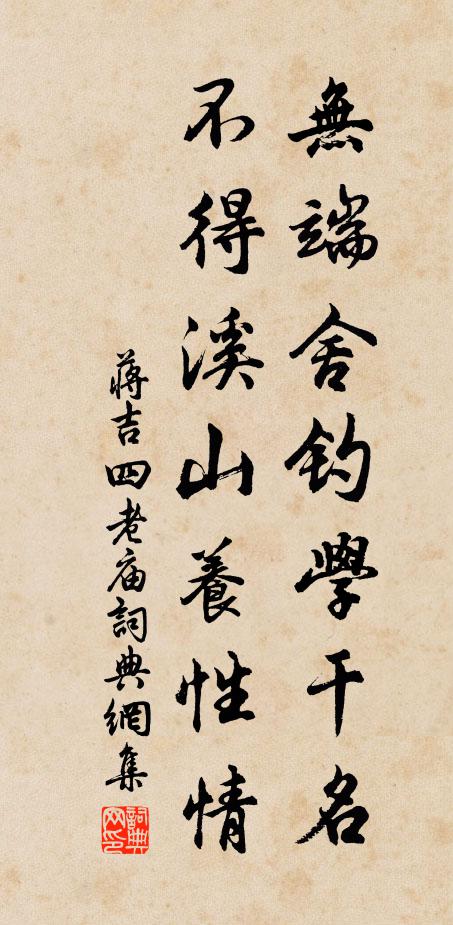 無端舍釣學干名
不得溪山養性情
蔣吉四老庙詞典網集
詞典网印